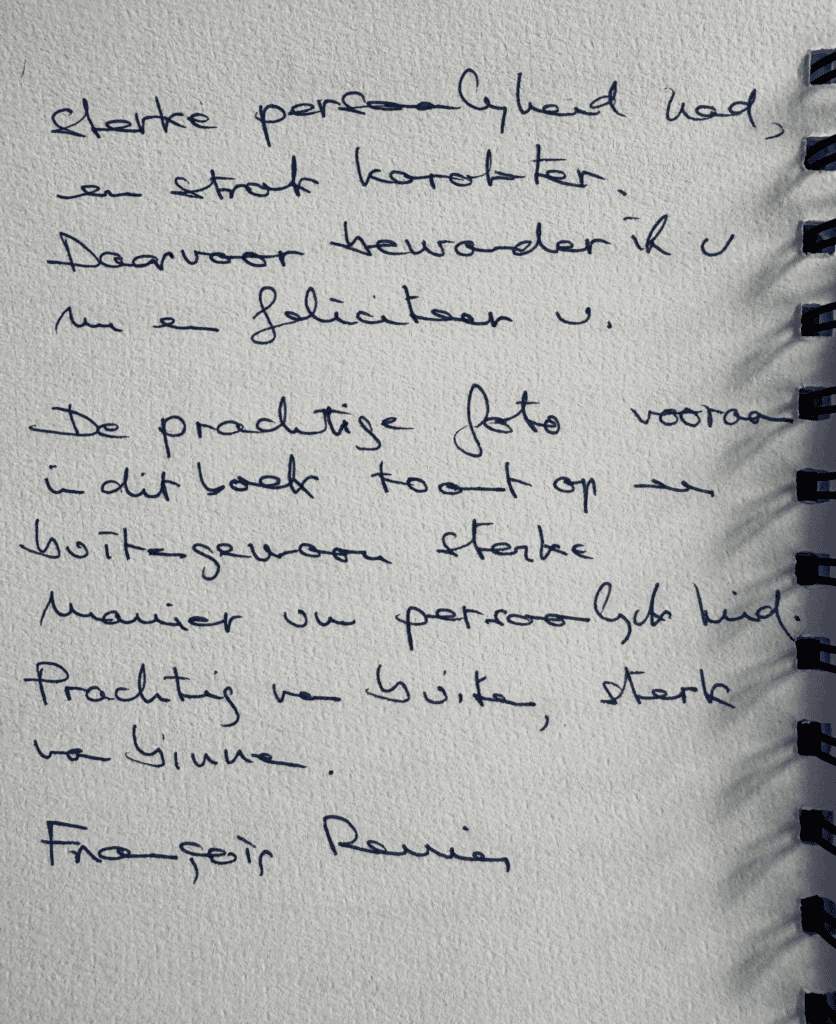 sterke persoonlijkheid had,
een strak karakter.
Daarvoor bewonder ik u
nu en feliciteer u.
De prachtige foto vooraan
in dit boek toont op een
buitengewoon sterke
manier uw persoonlijkheid.
Prachtig van buiten, sterk
van binnen.
François